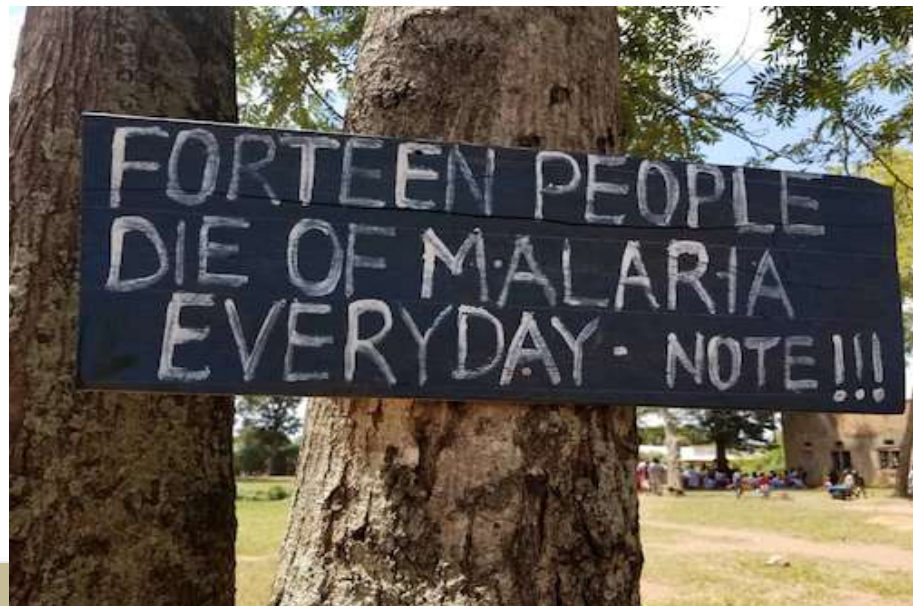 FORTEEN PEOPLE
DIE OF MALARIA
EVERYDAY - NOTE!!!